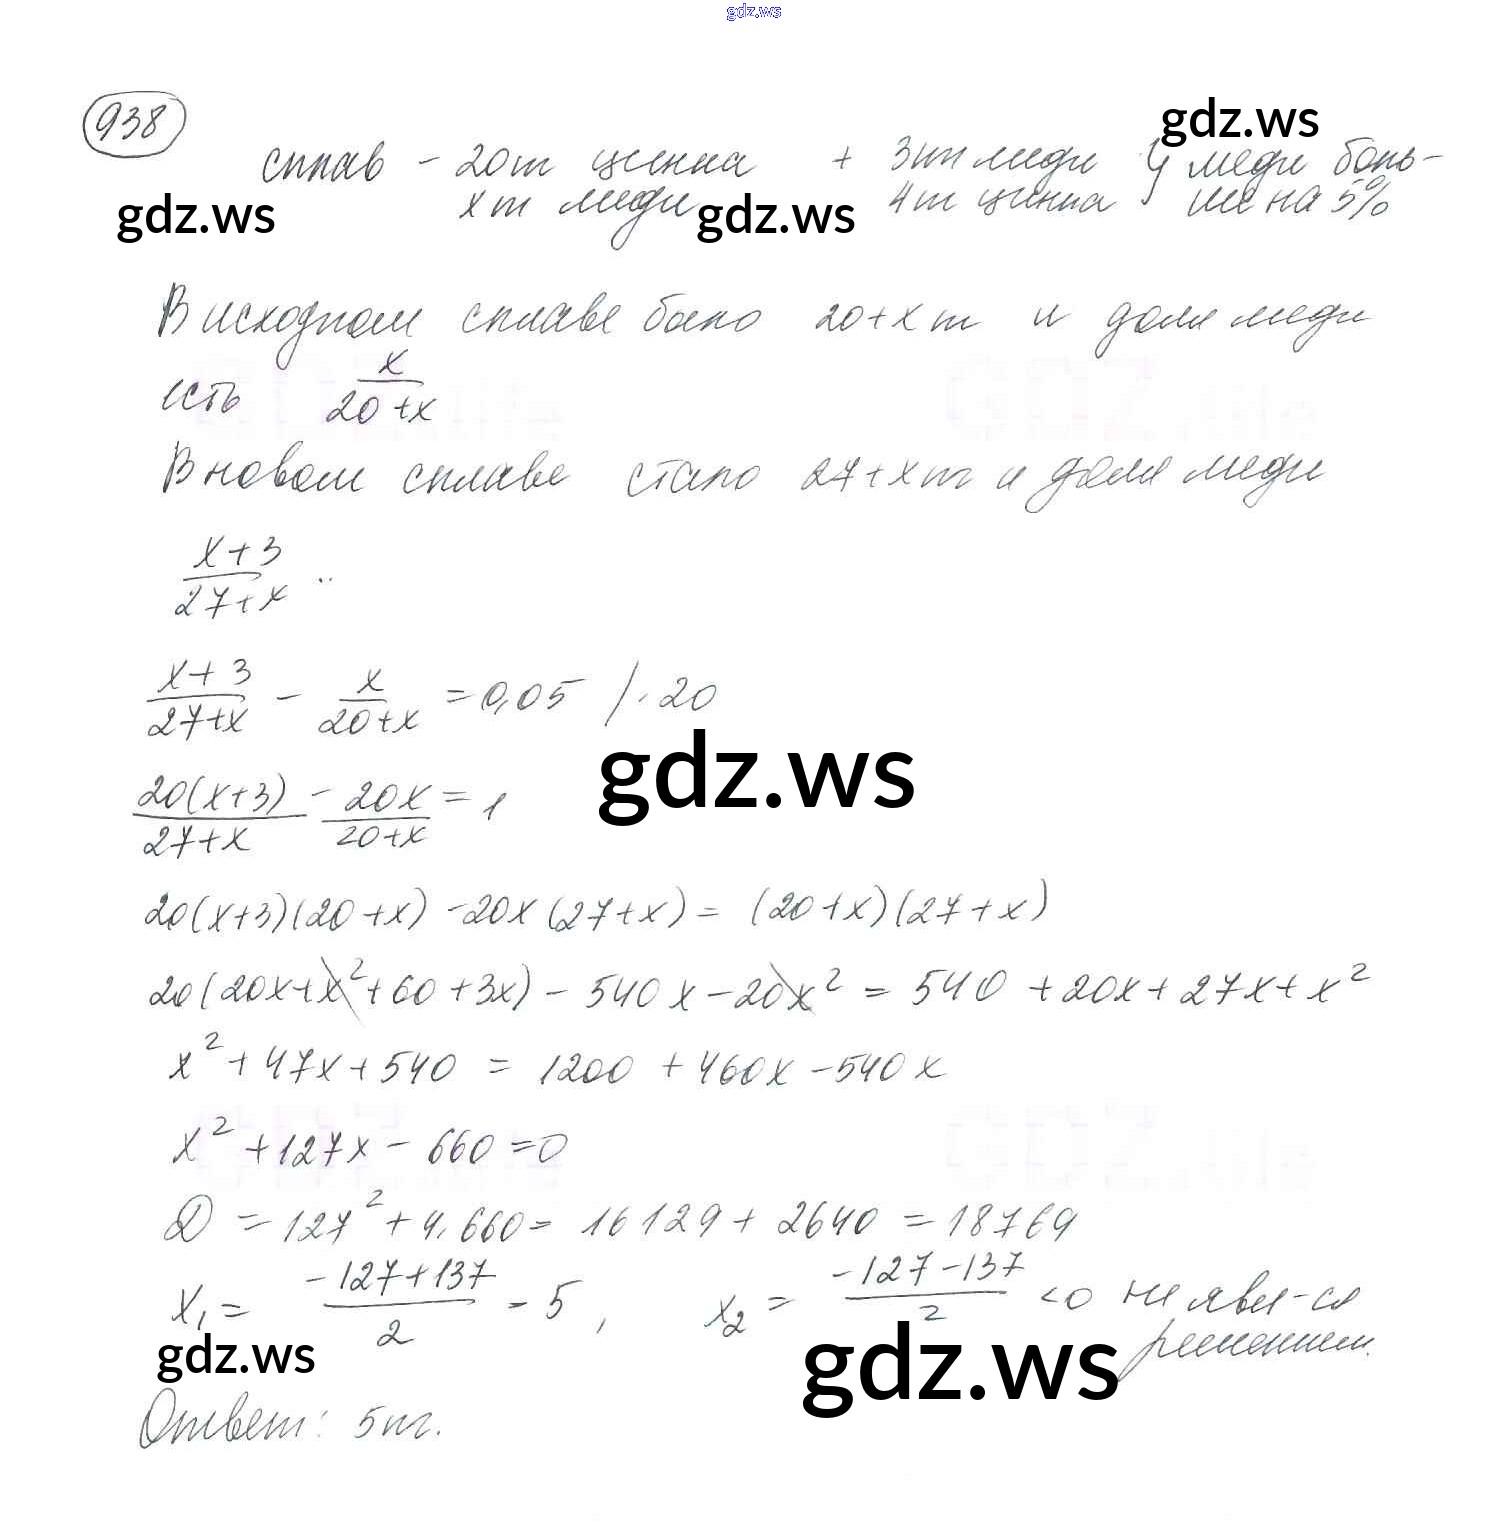 gdz.ws
938
gdz.ws
сплав - 20т цинка + 3т меди } меди боль-
хт меди 4т цинка ше на 5%
gdz.ws gdz.ws
В исходном сплаве было 20+x т и доля меди
есть x/(20+x)
В новом сплаве стало 27+x т и доля меди
(x+3)/(27+x) ..
(x+3)/(27+x) - x/(20+x) = 0,05 /·20
gdz.ws
20(x+3)/(27+x) - 20x/(20+x) = 1
20(x+3)(20+x) - 20x(27+x) = (20+x)(27+x)
20(20x+x²+60+3x) - 540x - 20x² = 540 + 20x + 27x + x²
x² + 47x + 540 = 1200 + 460x - 540x
x² + 127x - 660 = 0
D = 127² + 4·660 = 16129 + 2640 = 18769
x₁ = (-127+137)/2 = 5, x₂ = (-127-137)/2 <0 не явл-ся
решением.
gdz.ws gdz.ws
Ответ: 5т.